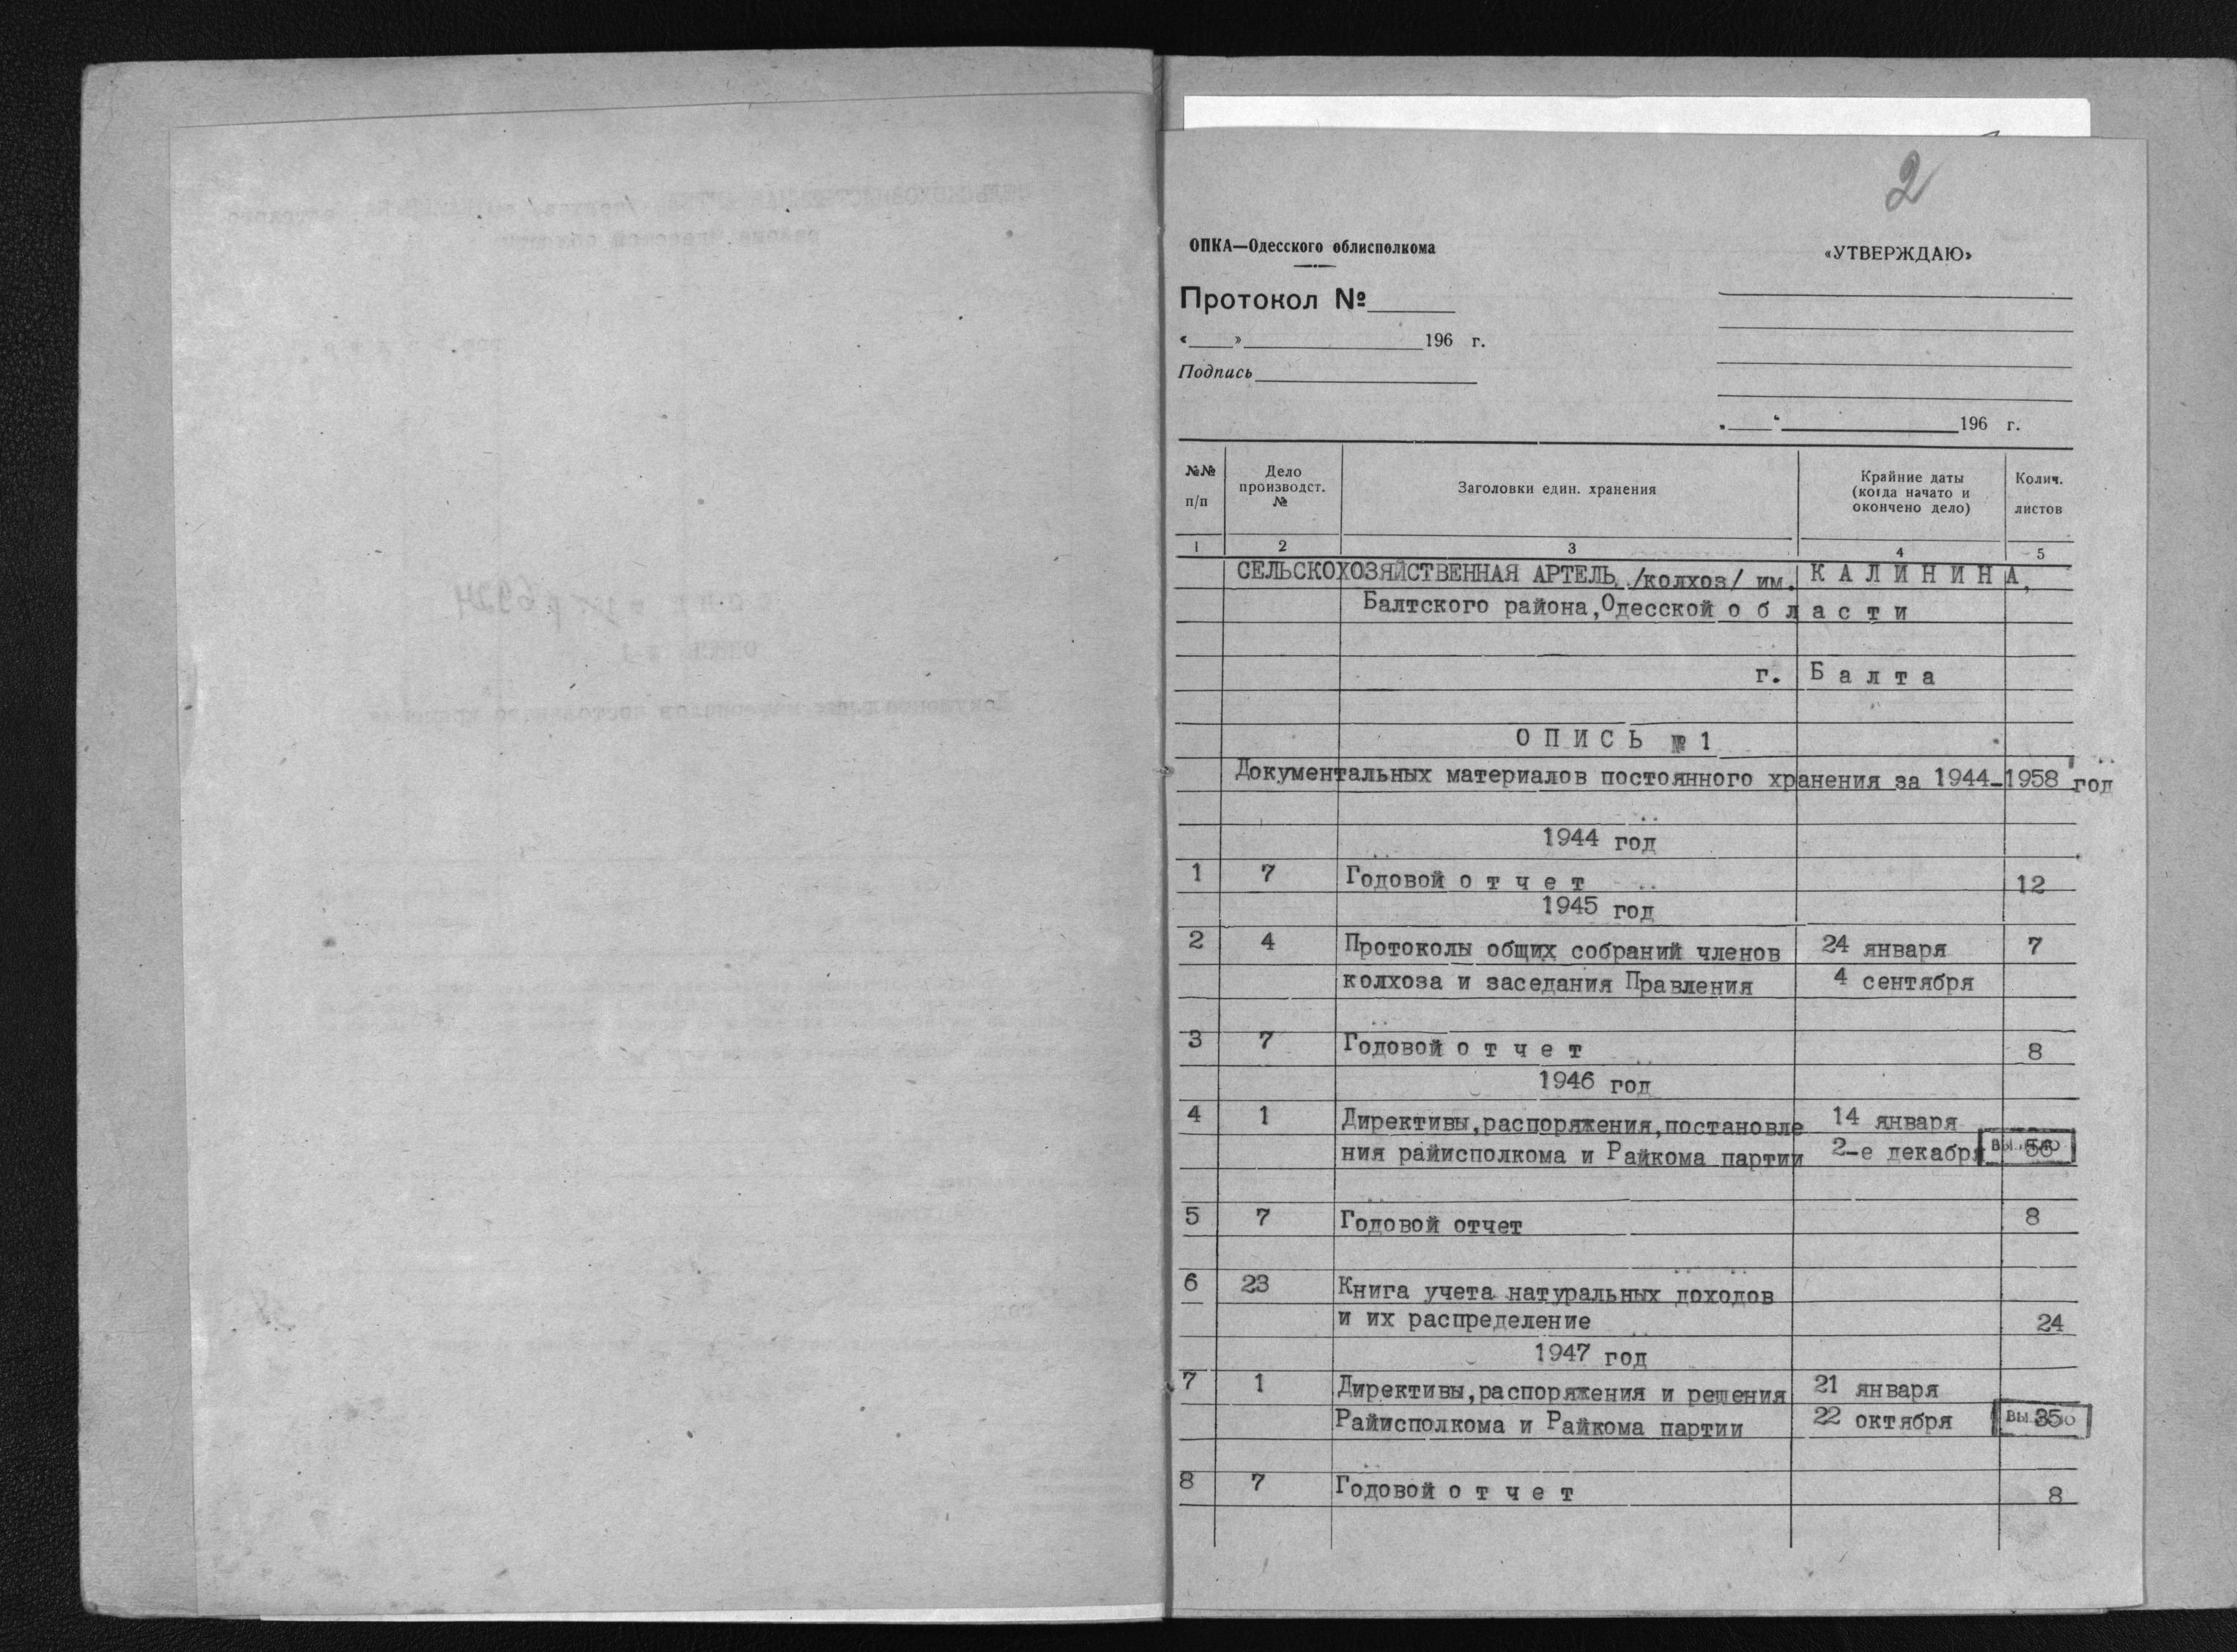 2
ОПКА—Одесского облисполкома
«УТВЕРЖДАЮ»
Протокол №
« » 196 г.
Подпись
„ “ 196 г.
№№ п/п
Дело производст. №
Заголовки един. хранения
Крайние даты (когда начато и окончено дело)
Колич. листов
1 2 3 4 5
СЕЛЬСКОХОЗЯЙСТВЕННАЯ АРТЕЛЬ /колхоз/ им. К А Л И Н И Н А,
Балтского района,Одесской о б л а с т и
г. Б а л т а
О П И С Ь № 1
Документальных материалов постоянного хранения за 1944-1958 год
1944 год
1 7 Годовой о т ч е т 12
1945 год
2 4 Протоколы общих собраний членов 24 января 7
колхоза и заседания Правления 4 сентября
3 7 Годовой о т ч е т 8
1946 год
4 1 Директивы,распоряжения,постановле 14 января
ния райисполкома и Райкома партии 2-е декабря 56
5 7 Годовой отчет 8
6 23 Книга учета натуральных доходов
и их распределение 24
1947 год
7 1 Директивы,распоряжения и решения 21 января
Райисполкома и Райкома партии 22 октября 35
8 7 Годовой о т ч е т 8